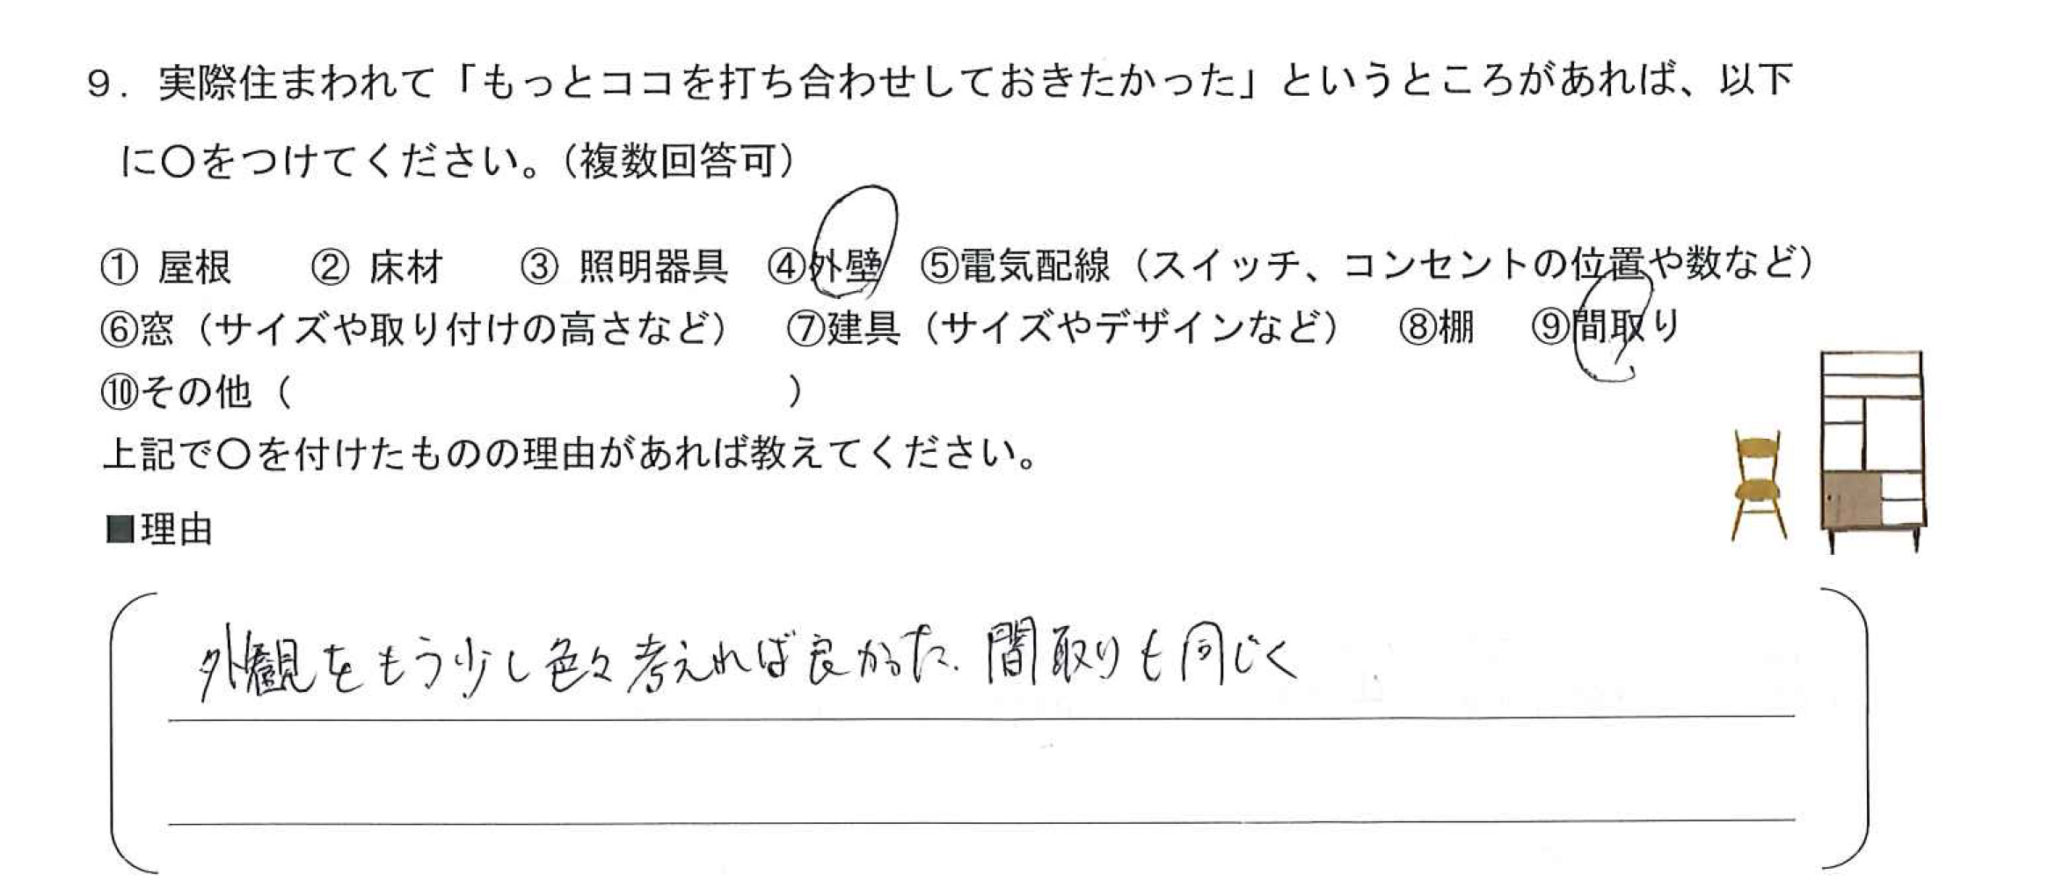 ９．実際住まわれて「もっとココを打ち合わせしておきたかった」というところがあれば、以下
に〇をつけてください。（複数回答可）
① 屋根　② 床材　③ 照明器具　④外壁　⑤電気配線（スイッチ、コンセントの位置や数など）
⑥窓（サイズや取り付けの高さなど）　⑦建具（サイズやデザインなど）　⑧棚　⑨間取り
⑩その他（　　　　　　　　　　　　　）
上記で〇を付けたものの理由があれば教えてください。
■理由
外観をもう少し色々考えれば良かった. 間取りも同じく